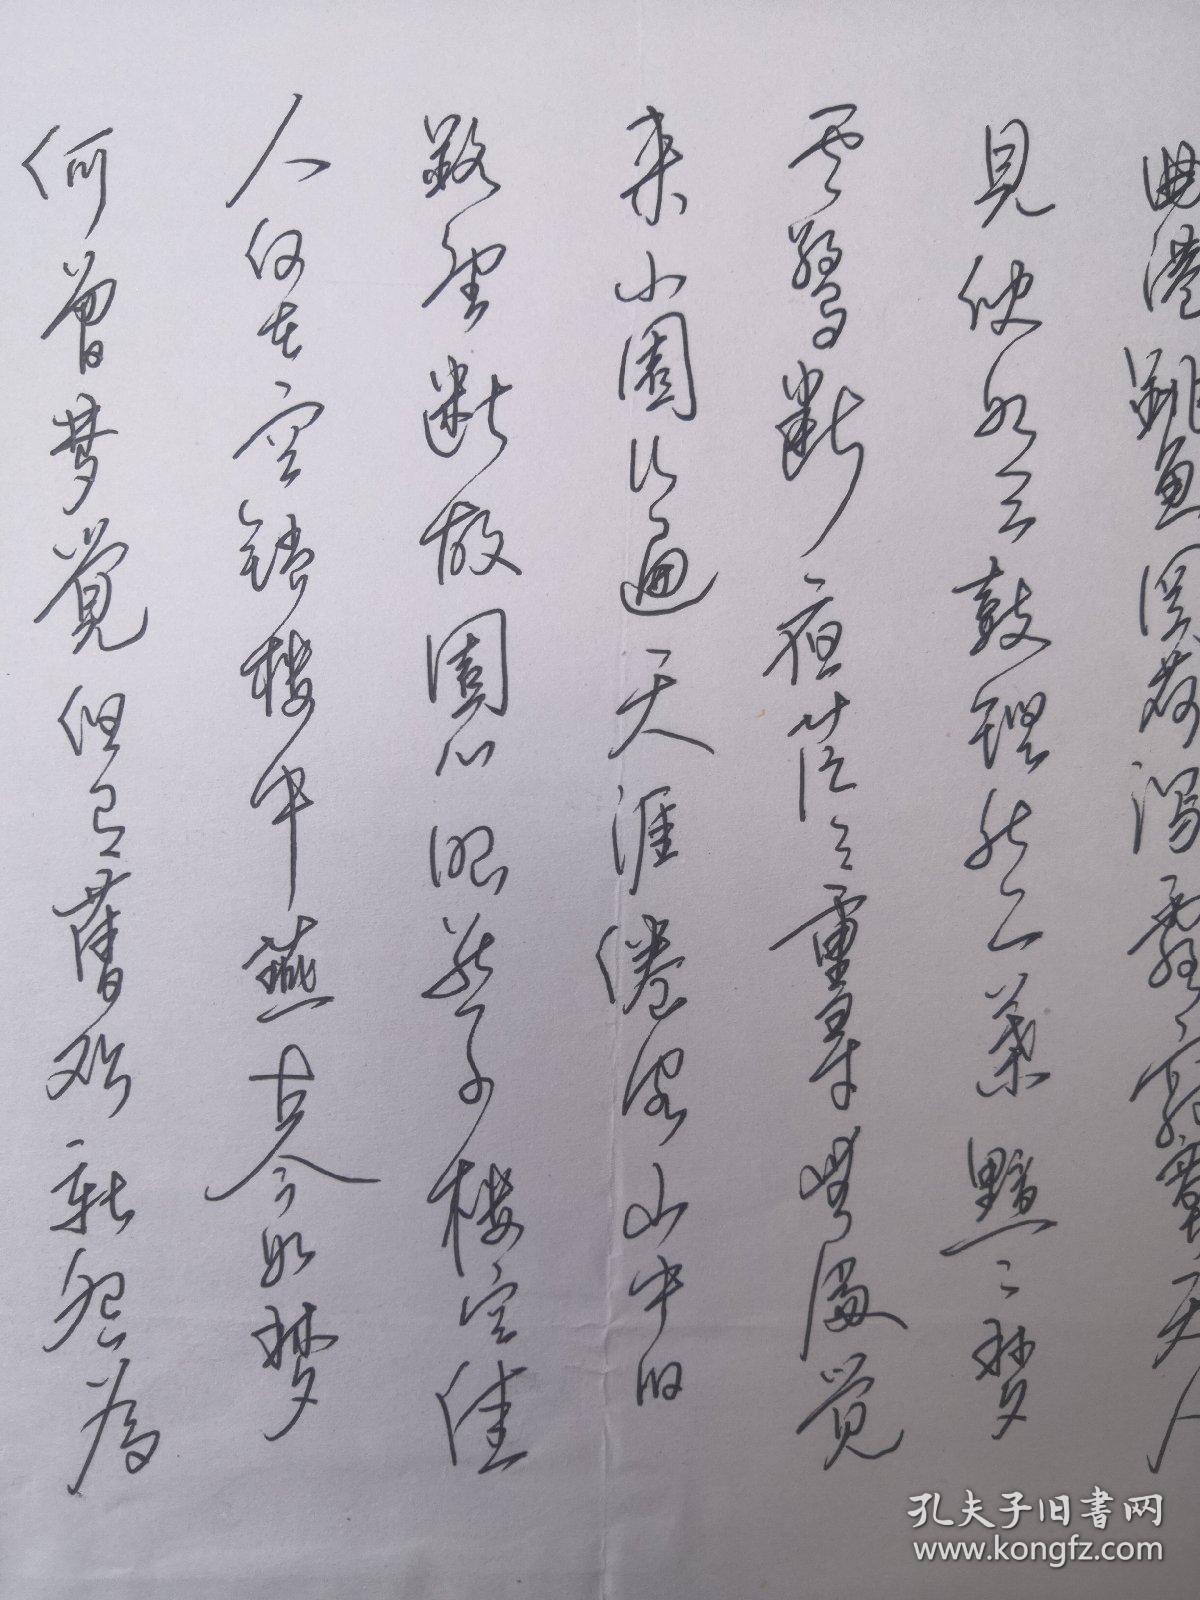 曲港跳鱼圆荷瀉露寂寞无人
見紞如三鼓鏗然一葉黯々梦
云驚断夜茫々重尋無處觉
来小園行遍天涯倦客山中归
路望断故園心眼燕子楼空佳
人何在空鎖楼中燕古今如梦
何曾梦覺但有舊欢新怨為
孔夫子旧书网
www.kongfz.com